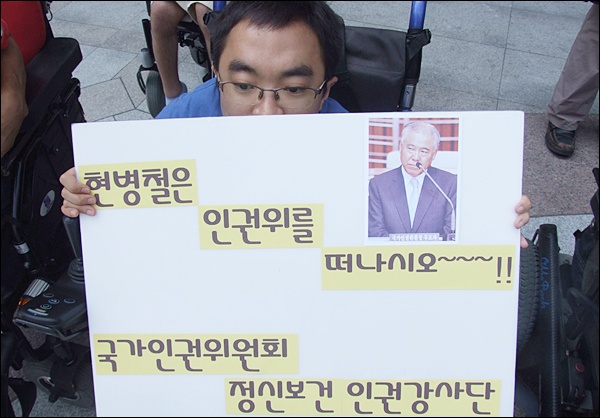 현병철은
인권위를
떠나시오~~~!!
국가인권위원회
정신보건 인권강사단